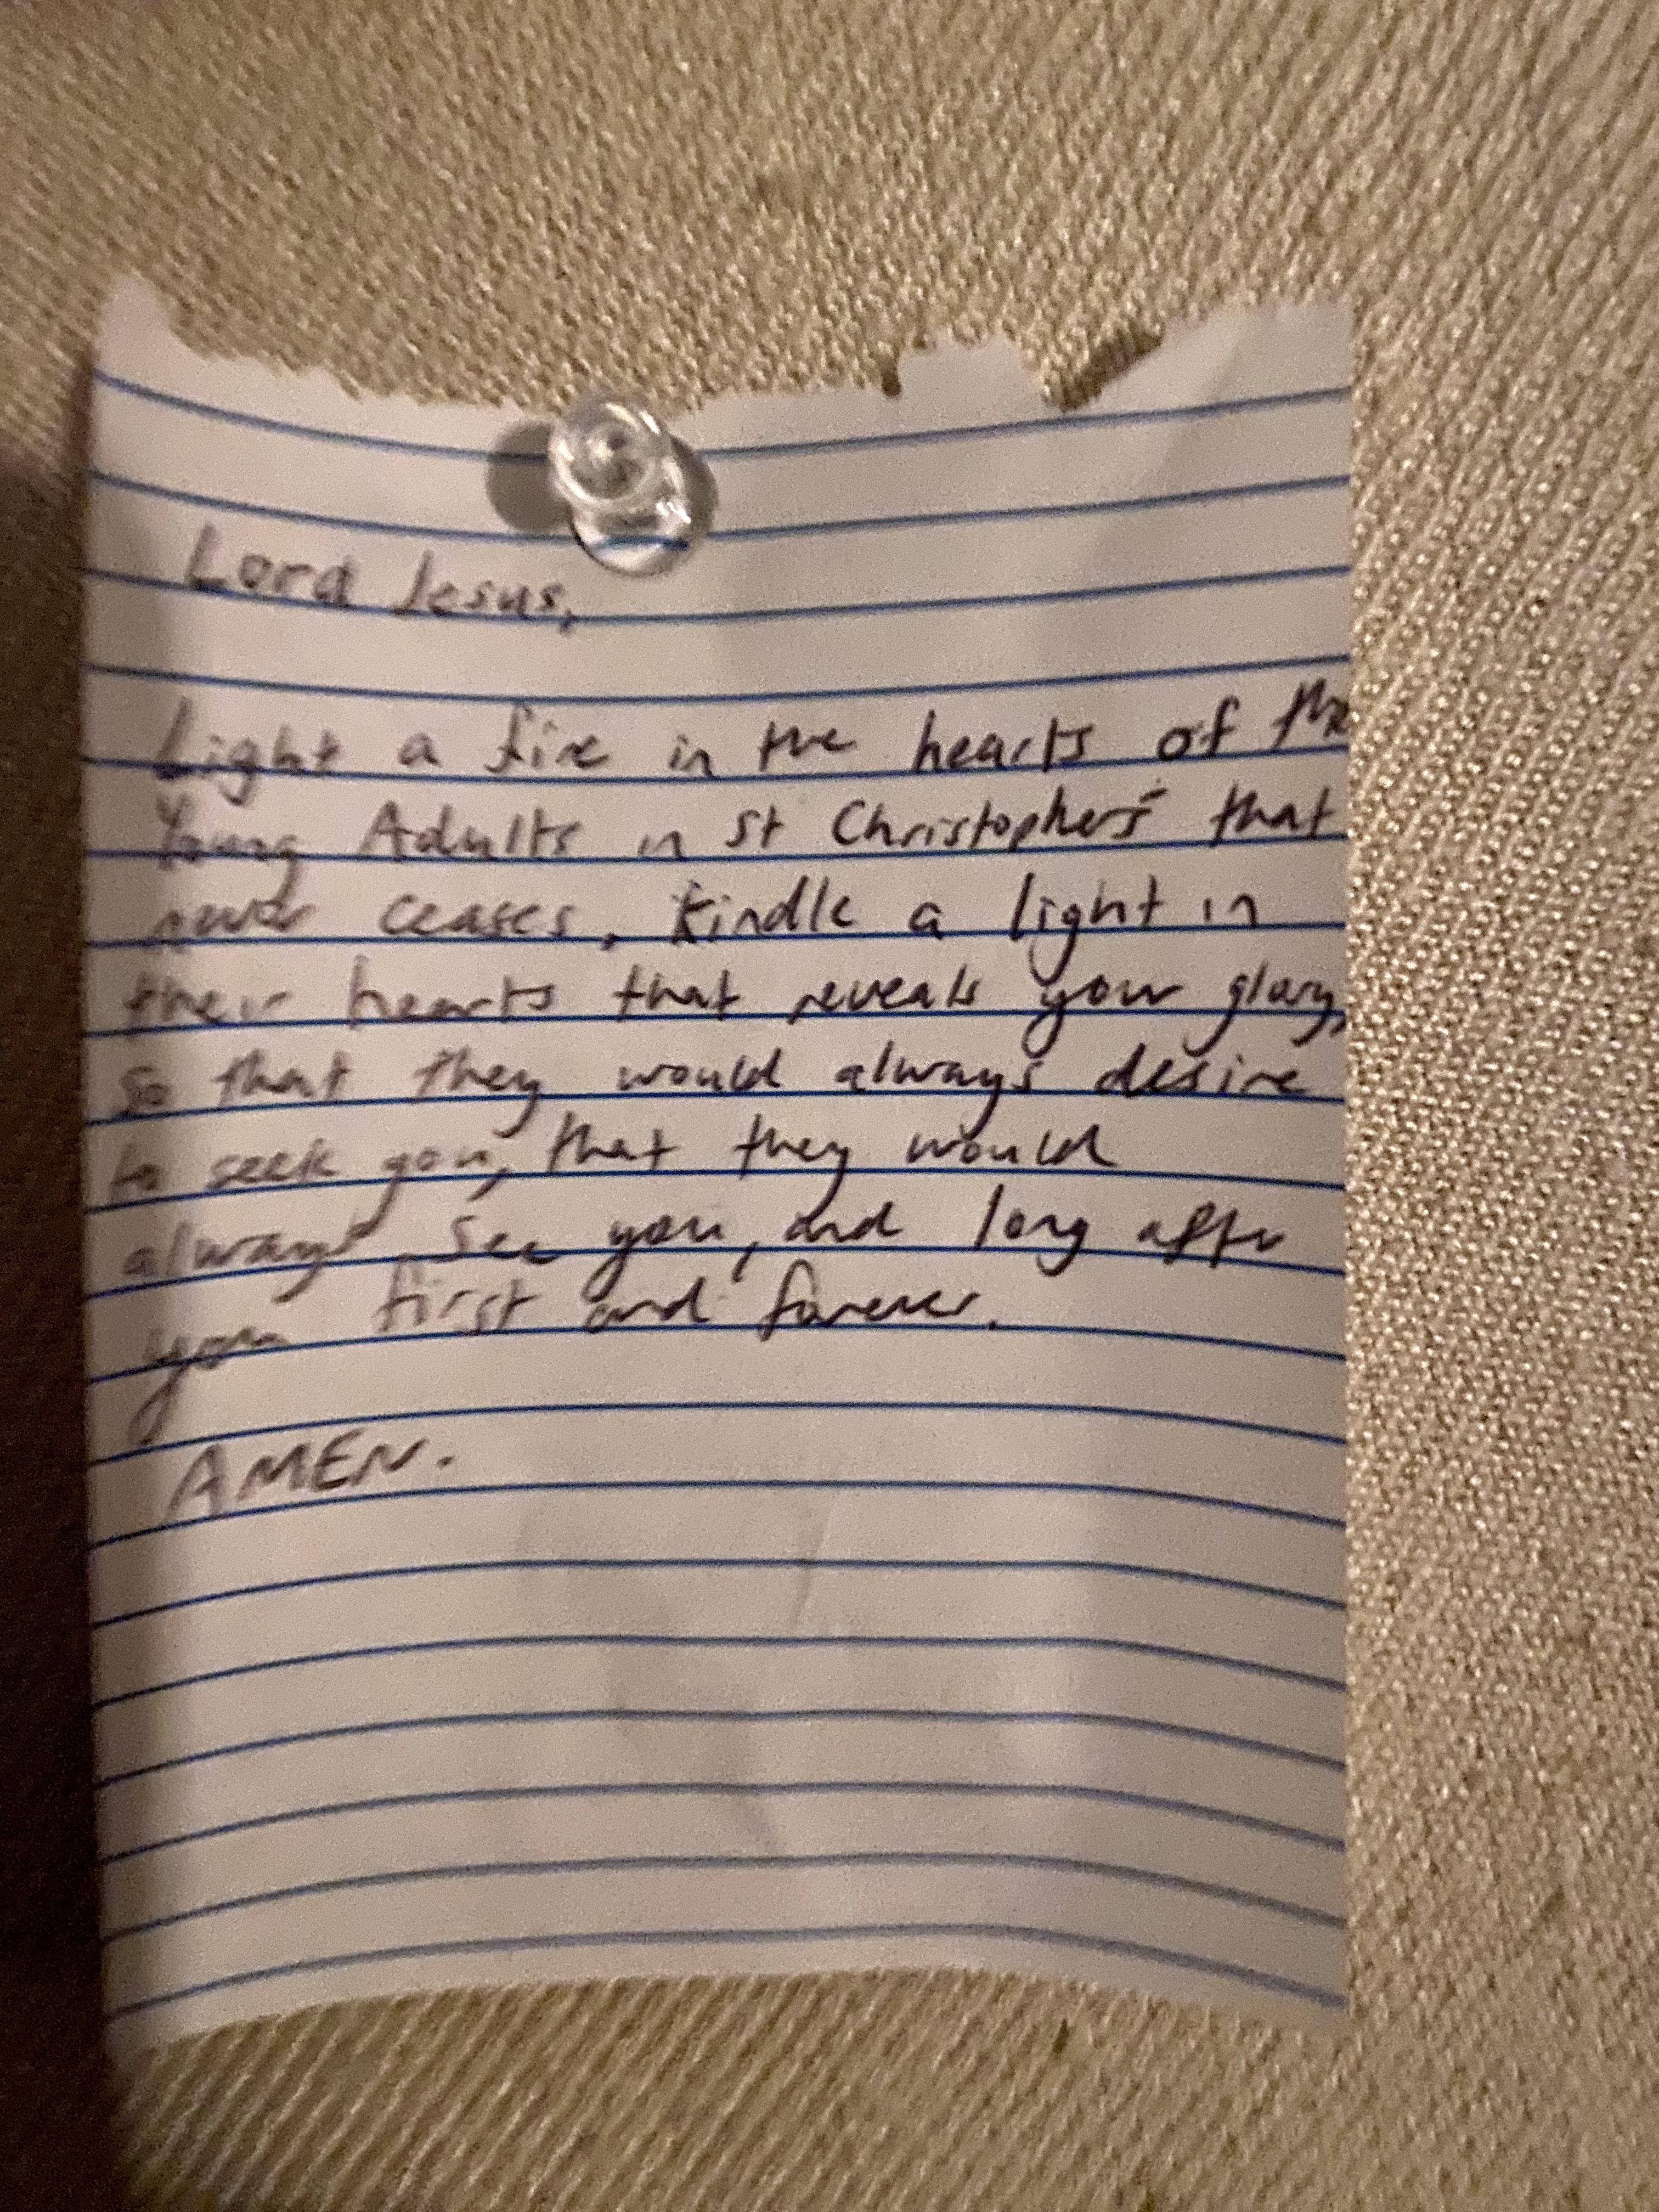 Lord Jesus,
Light a fire in the hearts of the
Young Adults in St Christopher's that
never ceases. Kindle a light in
their hearts that reveals your glory,
so that they would always desire
to seek you, that they would
always see you, and long after
you first and forever.
AMEN.